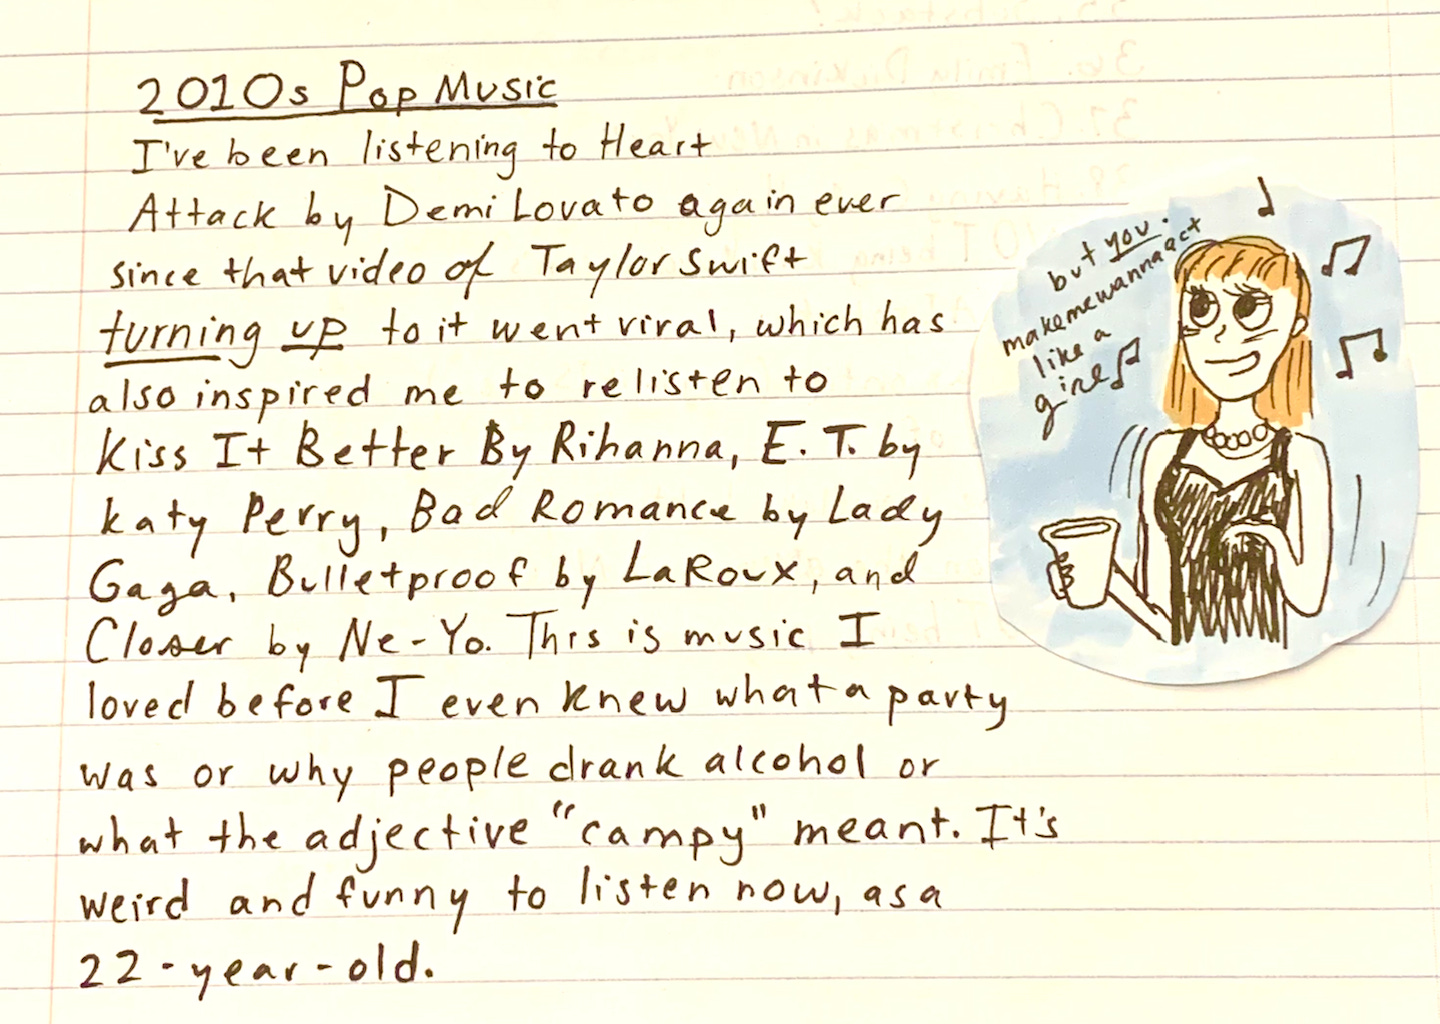 2010s Pop Music
I've been listening to Heart
Attack by Demi Lovato again ever
since that video of Taylor Swift
turning up to it went viral, which has
also inspired me to relisten to
Kiss It Better By Rihanna, E.T. by
Katy Perry, Bad Romance by Lady
Gaga, Bulletproof by LaRoux, and
Closer by Ne-Yo. This is music I
loved before I even knew what a party
was or why people drank alcohol or
what the adjective "campy" meant. It's
weird and funny to listen now, as a
22-year-old.
but you
make me wanna act
like a
girl